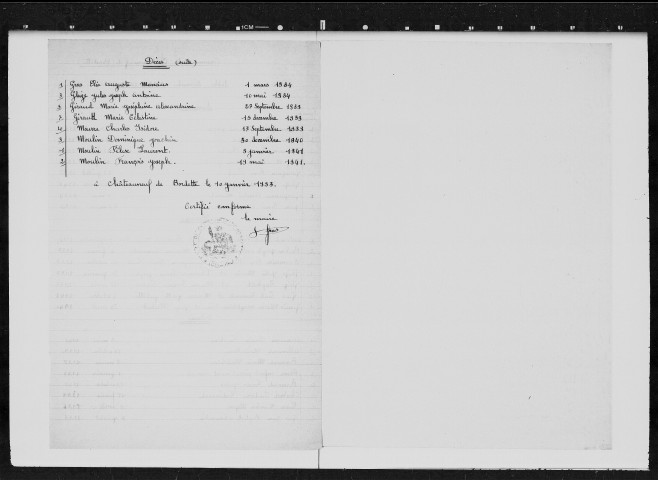 1CM
Décès (suite.)
1 Gras Elie Auguste Marius 1 mars 1934
2 Gleize Jules Joseph Antoine 10 mai 1934
3 Giraud Marie Joséphine Alexandrine 27 Septembre 1931
3 Girault Marie Célestine 15 décembre 1933
4 Maure Charles Isidore 13 Septembre 1933
3 Moulin Dominique Joachin 30 décembre 1940
1 Moulin Félix Laurent 3 janvier 1941
2 Moulin François Joseph. 19 mai 1941.
à Châteauneuf de Bordette le 10 janvier 1953.
Certifié conforme
le maire